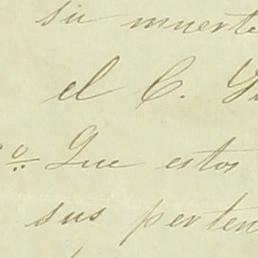 su muerte
el C. G
o Que estos
sus perten